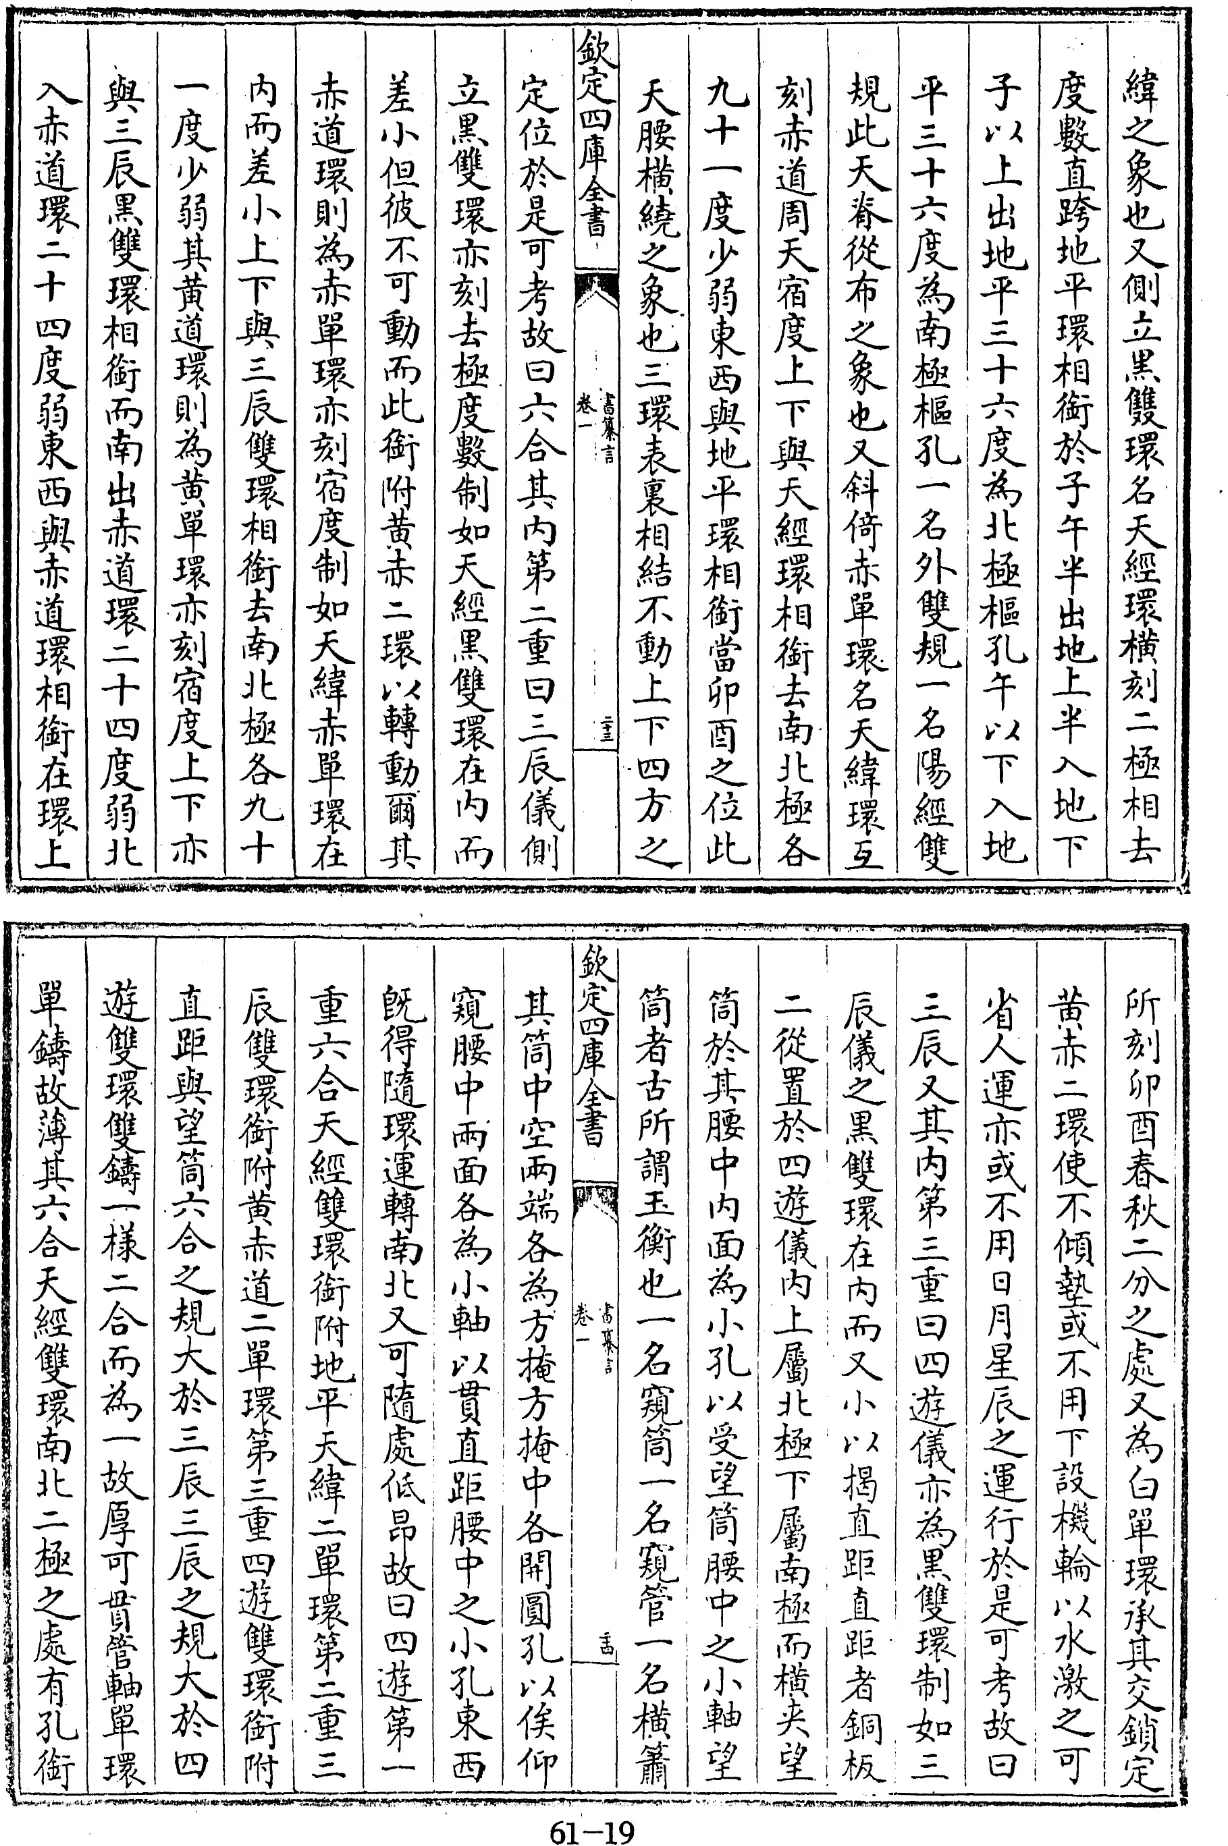 緯之象也又側立黒雙環名天經環横刻二極相去
度數直跨地平環相銜於子午半出地上半入地下
子以上出地平三十六度為北極樞孔午以下入地
平三十六度為南極樞孔一名外雙規一名陽經雙
規此天脊從布之象也又斜倚赤單環名天緯環互
刻赤道周天宿度上下與天經環相銜去南北極各
九十一度少弱東西與地平環相銜當卯酉之位此
天腰横繞之象也三環表裏相結不動上下四方之
欽定四庫全書
書纂言
卷一
二十三
定位於是可考故曰六合其内第二重曰三辰儀側
立黒雙環亦刻去極度數制如天經黒雙環在内而
差小但彼不可動而此銜附黄赤二環以轉動爾其
赤道環則為赤單環亦刻宿度制如天緯赤單環在
内而差小上下與三辰雙環相銜去南北極各九十
一度少弱其黄道環則為黄單環亦刻宿度上下亦
與三辰黒雙環相銜而南出赤道環二十四度弱北
入赤道環二十四度弱東西與赤道環相銜在環上
所刻卯酉春秋二分之處又為白單環承其交鎖定
黄赤二環使不傾墊或不用下設機輪以水激之可
省人運亦或不用日月星辰之運行於是可考故曰
三辰又其内第三重曰四遊儀亦為黒雙環制如三
辰儀之黒雙環在内而又小以揭直距直距者銅板
二從置於四遊儀内上屬北極下屬南極而横夾望
筒於其腰中内面為小孔以受望筒腰中之小軸望
筒者古所謂玉衡也一名窺筒一名窺管一名横簫
欽定四庫全書
書纂言
卷一
二十四
其筒中空兩端各為方掩方掩中各開圓孔以俟仰
窺腰中兩面各為小軸以貫直距腰中之小孔東西
既得隨環運轉南北又可隨處低昂故曰四遊第一
重六合天經雙環銜附地平天緯二單環第二重三
辰雙環銜附黄赤道二單環第三重四遊雙環銜附
直距與望筒六合之規大於三辰三辰之規大於四
遊雙環雙鑄一様二合而為一故厚可貫管軸單環
單鑄故薄其六合天經雙環南北二極之處有孔銜
61-19